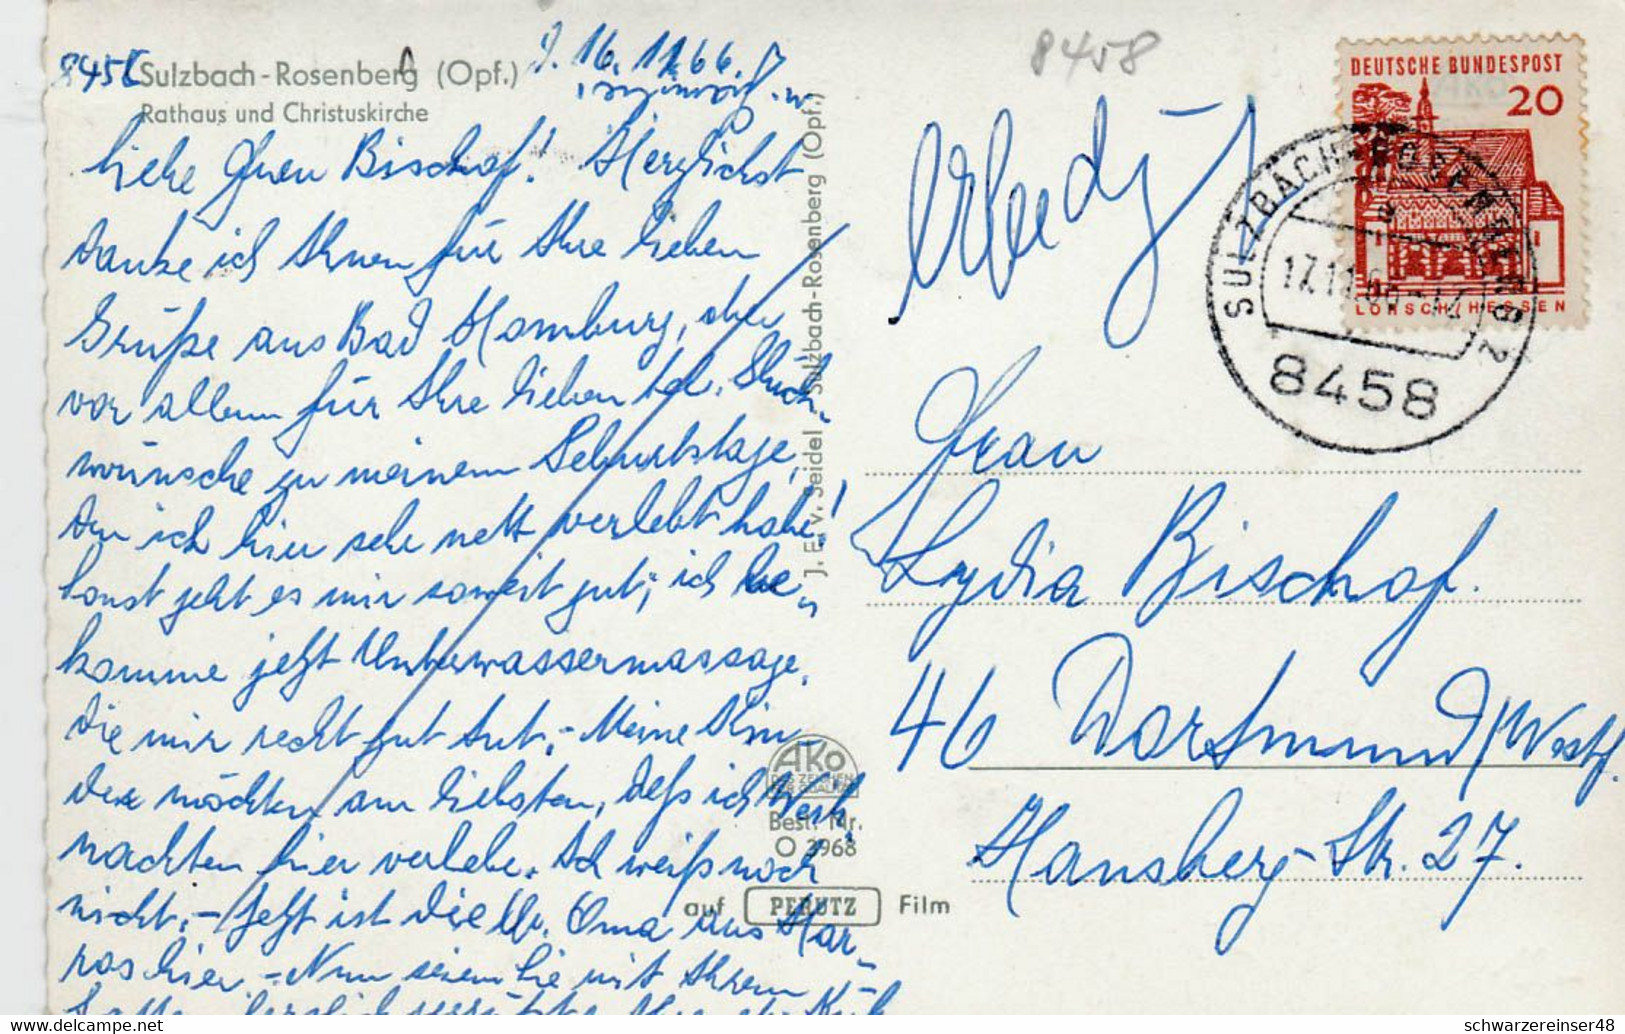 8458
Sulzbach-Rosenberg (Opf.)
Rathaus und Christuskirche
16. 11. 66.
Liebe Frau Bischof! Herzlichst
danke ich Ihnen für Ihre lieben
Grüße aus Bad Homburg, aber
vor allem für Ihre lieben tel. Glück-
wünsche zu meinem Geburtstage,
den ich hier sehr nett verlebt habe!
Sonst geht es mir soweit gut; ich be-
komme jetzt Unterwassermassage,
die mir recht gut tut. - Meine Kin
der möchten am liebsten, daß ich Weih,
nachten hier verlebe. Ich weiß noch
nicht. - Jetzt ist die Oma aus Har-
ras hier. - Nun seien Sie mit Ihrem
herzlich
J. E. v. Seidel Sulzbach-Rosenberg (Opf.)
AKO
DAS ZEICHEN
FÜR QUALITÄT
Best. Nr.
O 3968
auf PERUTZ Film
8458
DEUTSCHE BUNDESPOST
20
LORSCH/HESSEN
SULZBACH-ROSENBERG 2
a
17.11.66-12
8458
Frau
Lydia Bischof.
46 Dortmund/Westf.
Hansberg-Str. 27.
www.delcampe.net
schwarzereinser48